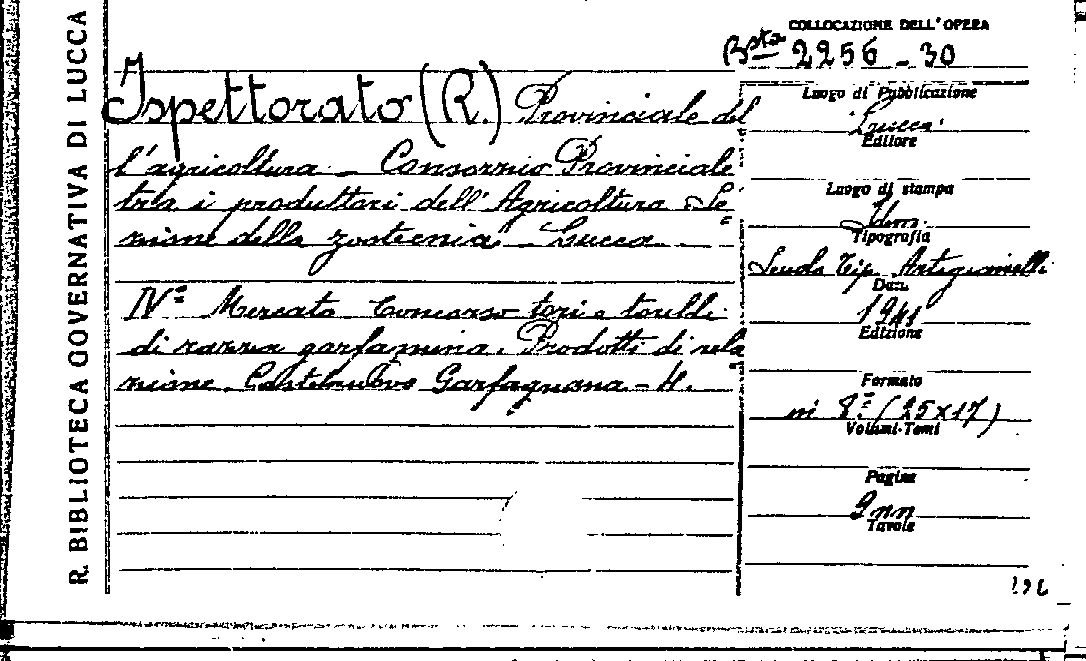 R. BIBLIOTECA GOVERNATIVA DI LUCCA
COLLOCAZIONE DELL'OPERA
Bsta 2256 - 30
Ispettorato (R.) Provinciale del
l'agricoltura - Consorzio Provinciale
tra i produttori dell'Agricoltura Se
zione della zootecnia - Lucca
IVº Mercato Concorso tori e torelli
di razza garfagnina. Prodotti di sela
zione. Castelnuovo Garfagnana -
Luogo di Pubblicazione
Lucca
Editore
Luogo di stampa
Idem
Tipografia
Scuola Tip. Artigianelli
Data
1941
Edizione
Formato
in 8º (25x17)
Volumi-Tomi
Pagine
9 nn
Tavole